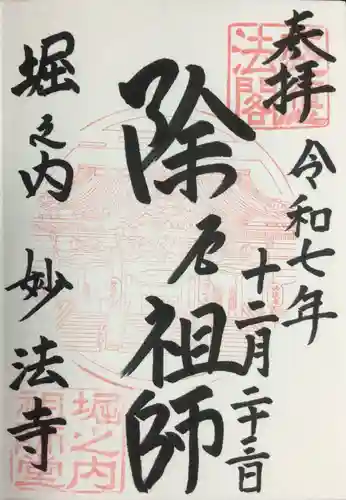 奉拝
令和七年
十二月二十三日
除厄祖師
堀之内
妙法寺
堀之内